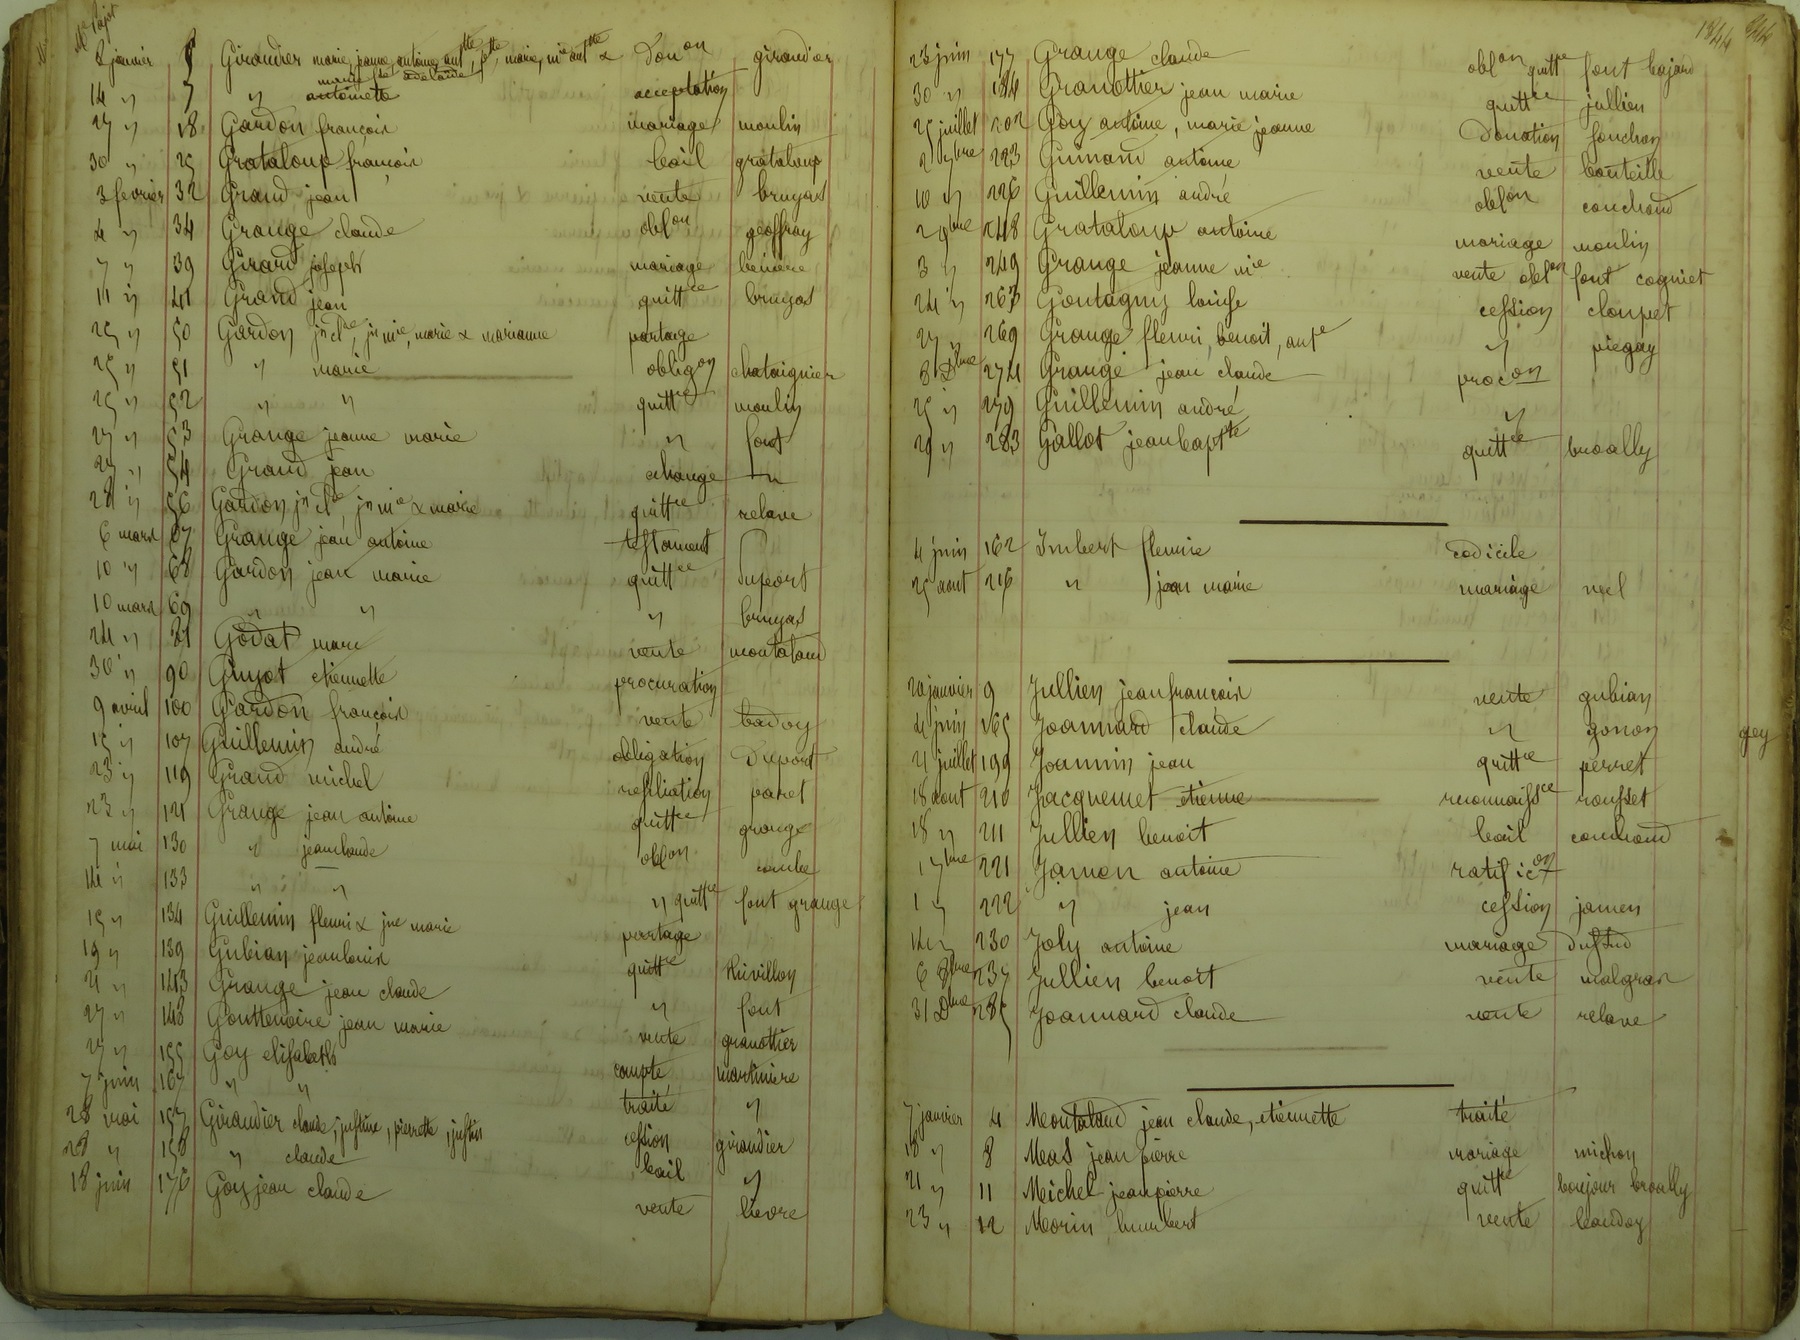 Me Pajot
2 janvier 6 Girandier marie, jeanne, antoine, antte, ptte, marie, mie antte & Donon girandier
marie ptte adelaide
14 " 7 " antoinette acceptation
27 " 18 Gardon françois mariage moulin
30 " 25 Grataloup françois bail grataloup
3 fevrier 32 Grand jean vente bruyas
4 " 34 Grange claude oblon geoffray
7 " 39 Girard joseph mariage
11 " 41 Grand jean quittce bruyas
25 " 50 Gardon jn cde, jn mie, marie & marianne partage
25 " 51 " marie obligon chataignier
25 " 52 " " quittce moulin
27 " 53 Grange jeanne marie " font
27 " 54 Grand jean echange "
28 " 56 Gardon jn cde, jn mie & marie quittce relave
6 mars 67 Grange jean antoine testament
10 " 68 Gardon jean marie quittce Duport
10 mars 69 " " " bruyas
24 " 81 Godat marc vente montaland
30 " 90 Guyot etiennette procuration
9 avril 100 Gardon françois vente badoy
15 " 107 Guillemin andré obligation Duport
23 " 119 Grand michel resiliation paret
23 " 121 Grange jean antoine quittce grange
7 mai 130 " jeanclaude oblon combe
14 " 133 " " " quittce font grange
15 " 134 Guillemin fleuri & jne marie partage
19 " 139 Gubian jeanlouis quittce thivillon
21 " 143 Grange jean claude " font
27 " 148 Gouttenoire jean marie vente granottier
27 " 155 Goy elisabeth compte martiniere
7 juin 167 " " traité "
28 mai 157 Girandier claude, justine, pierrette, justin cession girandier
28 " 158 " claude bail "
18 juin 176 Goy jean claude vente lievre
1844 844
23 juin 177 Grange claude oblon quittce font bajard
30 " 184 Granottier jean marie quittce jullien
25 juillet 202 Goy antoine, marie jeanne Donation fonchon
2 7bre 223 Guinand antoine vente bouteille
10 " 226 Guillemin andré oblon couchoud
2 9bre 248 Grataloup antoine mariage moulin
3 " 249 Grange jeanne mie vente oblon font cogniet
24 " 263 Gontagny louise cession cloupet
27 " 269 Grange fleuri, benoit, ante " piegay
8 Dbre 274 Grange jean claude procon
25 " 279 Guillemin andré "
29 " 283 Gallot jeanbaptte quittce broally
4 juin 162 Imbert fleurie codicile
25 aout 216 " jean marie mariage neel
20 janvier 9 Jullien jeanfrançois vente gubian
4 juin 165 Joannard claude " gonon
goy
21 juillet 199 Joannin jean quittce perret
18 aout 210 Jacquemet etienne reconnaissce rousset
18 " 211 Jullien benoit bail couchoud
1 7bre 221 Jamen antoine ratificon
1 " 222 " jean cession jamen
14 " 230 Joly antoine mariage Dussud
6 8bre 237 Jullien benoit vente malgras
31 Dbre 285 Joannard claude vente relave
7 janvier 4 Montaland jean claude, etiennette traité
18 " 8 Mas jean pierre mariage michon
21 " 11 Michel jeanpierre quittce bonjour broally
23 " 12 Morin humbert vente beaudoy